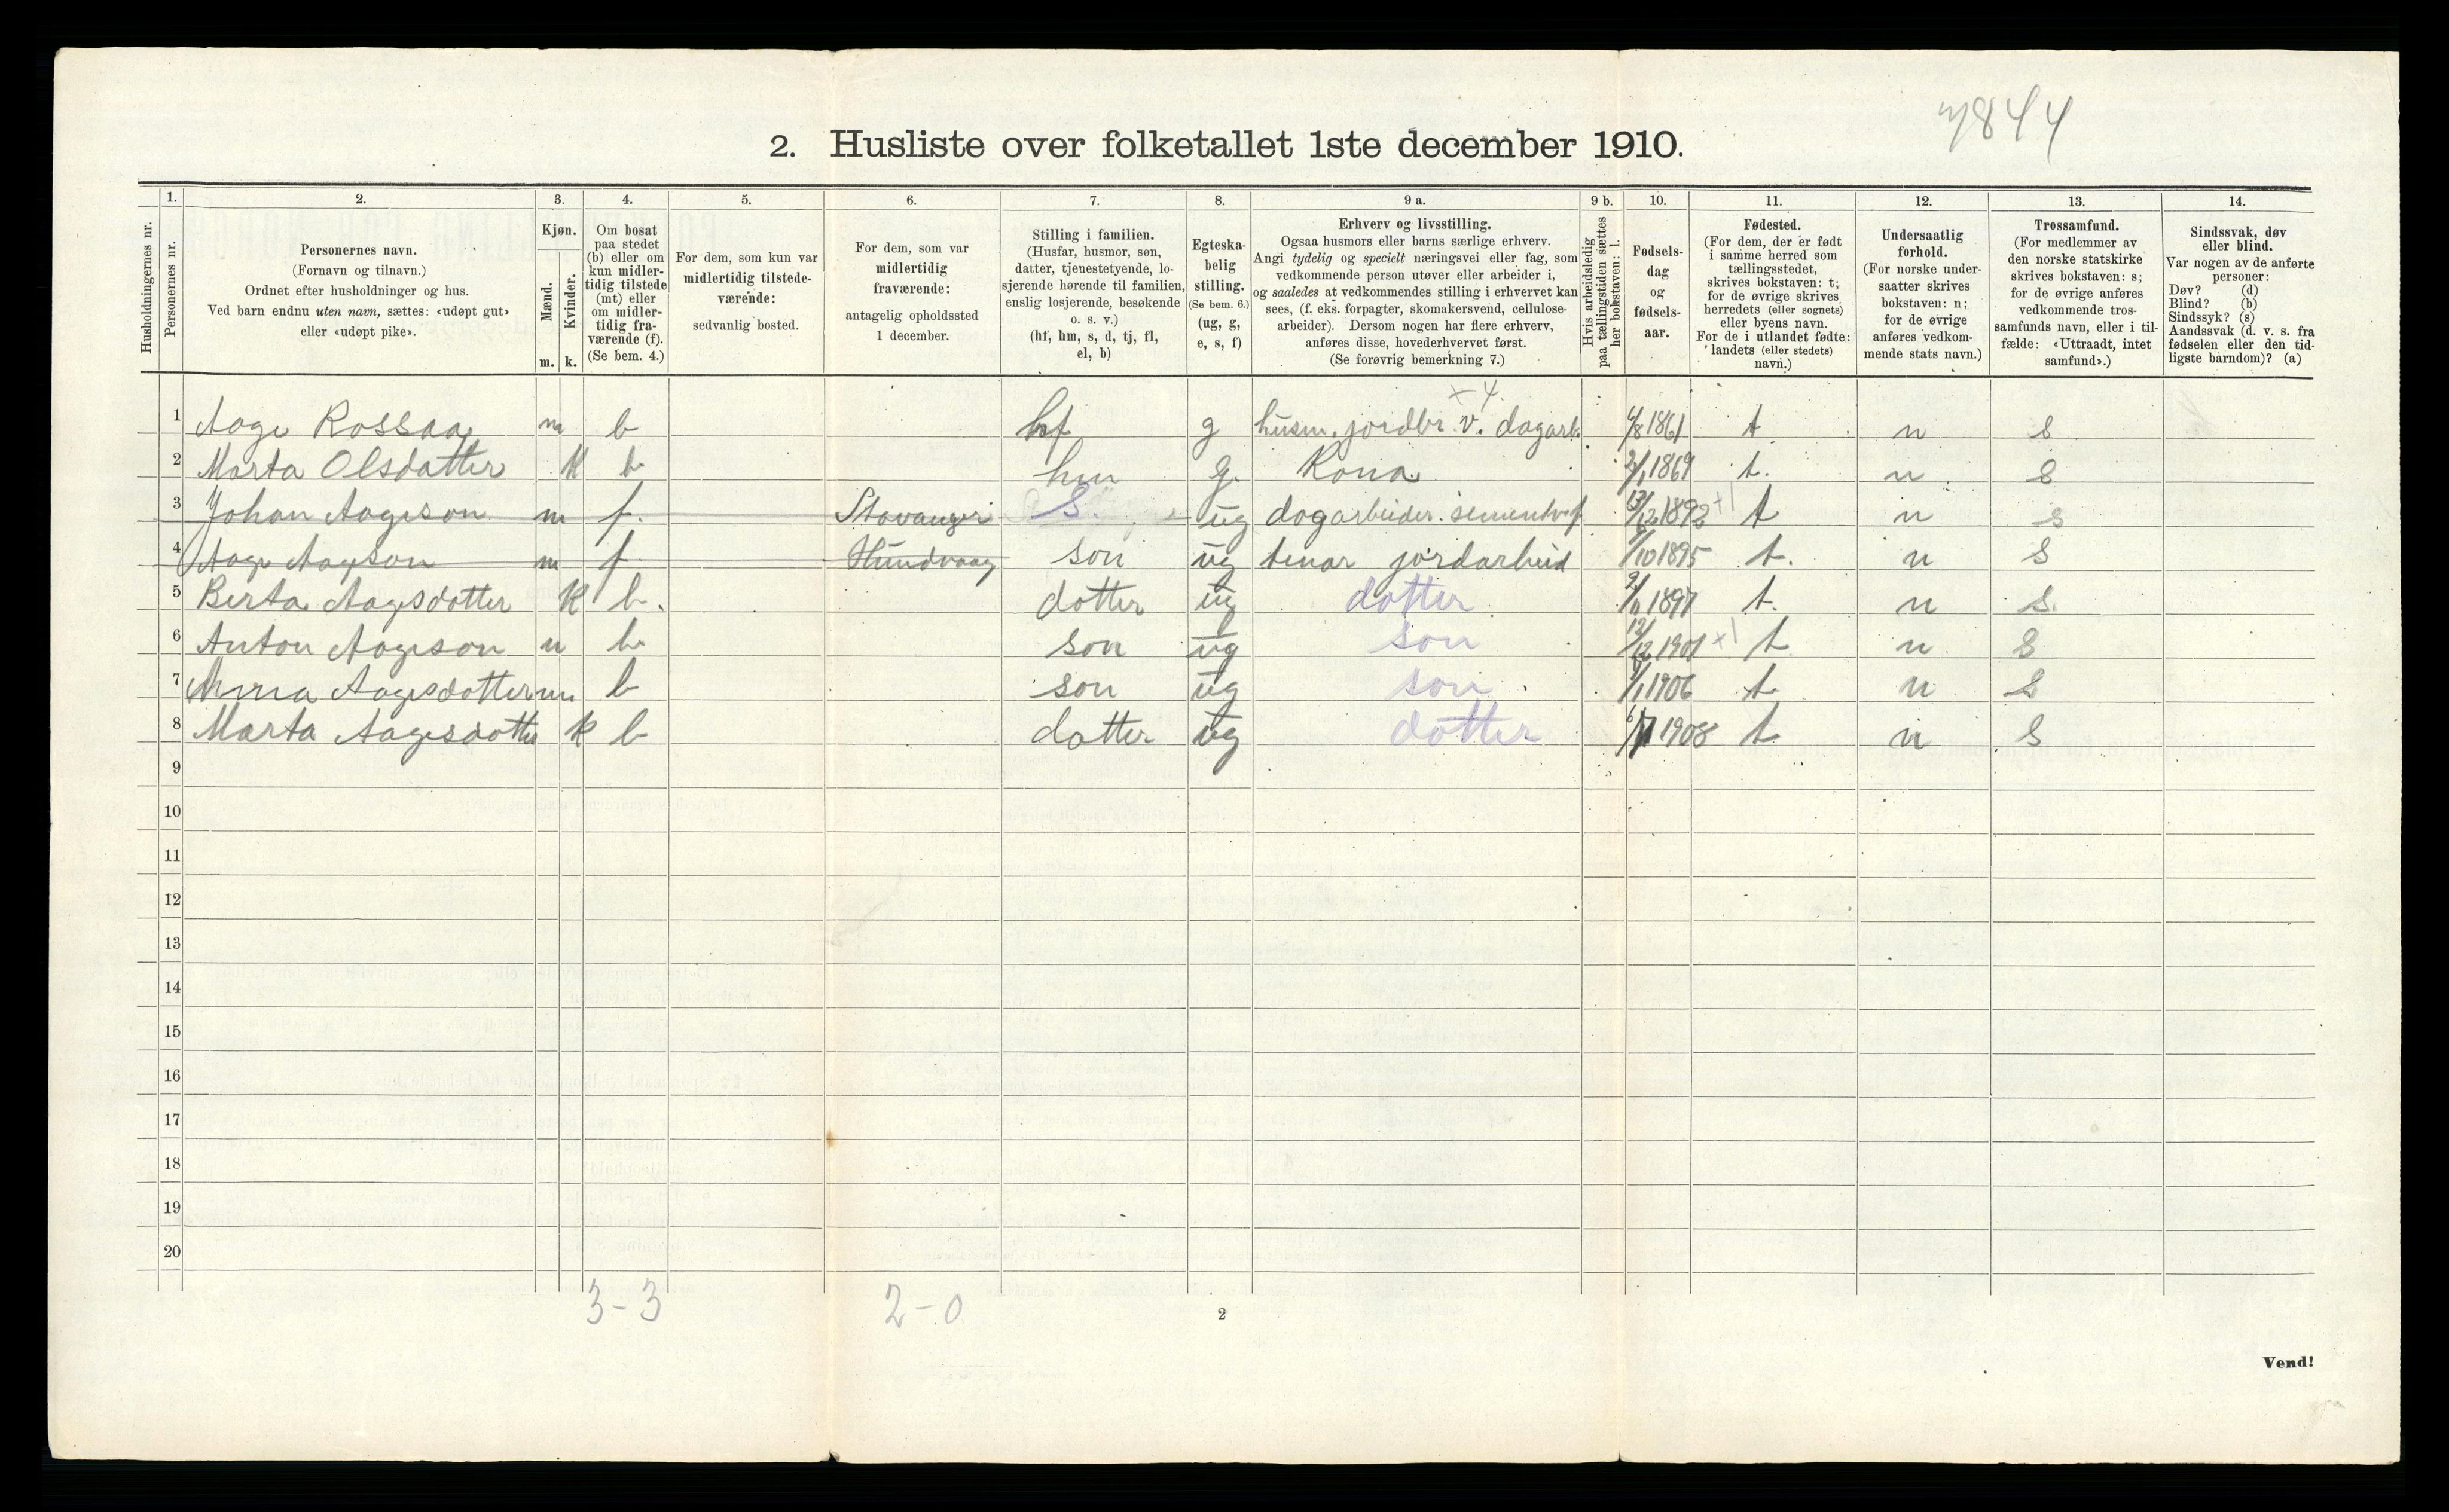 7844
2. Husliste over folketallet 1ste december 1910.
Husholdningernes nr.
1.
Personernes nr.
2.
Personernes navn.
(Fornavn og tilnavn.)
Ordnet efter husholdninger og hus.
Ved barn endnu uten navn, sættes: «udøpt gut»
eller «udøpt pike».
3.
Kjøn.
Mænd.
Kvinder.
m. k.
4.
Om bosat
paa stedet
(b) eller om
kun midler-
tidig tilstede
(mt) eller
om midler-
tidig fra-
værende (f).
(Se bem. 4.)
5.
For dem, som kun var
midlertidig tilstede-
værende:
sedvanlig bosted.
6.
For dem, som var
midlertidig
fraværende:
antagelig opholdssted
1 december.
7.
Stilling i familien.
(Husfar, husmor, søn,
datter, tjenestetyende, lo-
sjerende hørende til familien,
enslig losjerende, besøkende
o. s. v.)
(hf, hm, s, d, tj, fl,
el, b)
8.
Egteska-
belig
stilling.
(Se bem. 6.)
(ug, g,
e, s, f)
9 a.
Erhverv og livsstilling.
Ogsaa husmors eller barns særlige erhverv.
Angi tydelig og specielt næringsvei eller fag, som
vedkommende person utøver eller arbeider i,
og saaledes at vedkommendes stilling i erhvervet kan
sees, (f. eks. forpagter, skomakersvend, cellulose-
arbeider). Dersom nogen har flere erhverv,
anføres disse, hovederhvervet først.
(Se forøvrig bemerkning 7.)
9 b.
Hvis arbeidsledig
paa tællingstiden sættes
her bokstaven: l.
10.
Fødsels-
dag
og
fødsels-
aar.
11.
Fødested.
(For dem, der er født
i samme herred som
tællingsstedet,
skrives bokstaven: t;
for de øvrige skrives
herredets (eller sognets)
eller byens navn.
For de i utlandet fødte:
landets (eller stedets)
navn.)
12.
Undersaatlig
forhold.
(For norske under-
saatter skrives
bokstaven: n;
for de øvrige
anføres vedkom-
mende stats navn.)
13.
Trossamfund.
(For medlemmer av
den norske statskirke
skrives bokstaven: s;
for de øvrige anføres
vedkommende tros-
samfunds navn, eller i til-
fælde: «Uttraadt, intet
samfund».)
14.
Sindssvak, døv
eller blind.
Var nogen av de anførte
personer:
Døv? (d)
Blind? (b)
Sindssyk? (s)
Aandssvak (d. v. s. fra
fødselen eller den tid-
ligste barndom)? (a)
x 4.
1 Aage Rossaa m b hf g husm. jordbr. v. dagarb. 4/8 1861 t n s
2 Marta Olsdatter K b hm g. Kona 2/1 1869 t. n s
3 Johan Aageson m f. Stavanger S. ug dagarbeider. 13/12 1892 +1 t n s
4 Aage Aageson m f Hundvaag son ug tenar jordarbeid /10 1895 t. n s
5 Berta Aagesdotter K b. dotter ug dotter 9/11 1897 t. n s.
6 Anton Aageson m b son ug son 12/12 1901 x1 t n s
7 Anna Aagesdotter m b son ug son /1 1906 t n s
8 Marta Aagesdotter k b dotter ug dotter 6/7 1908 t n s
9
10
11
12
13
14
15
16
17
18
19
20
3 - 3 2 - 0
2
Vend!